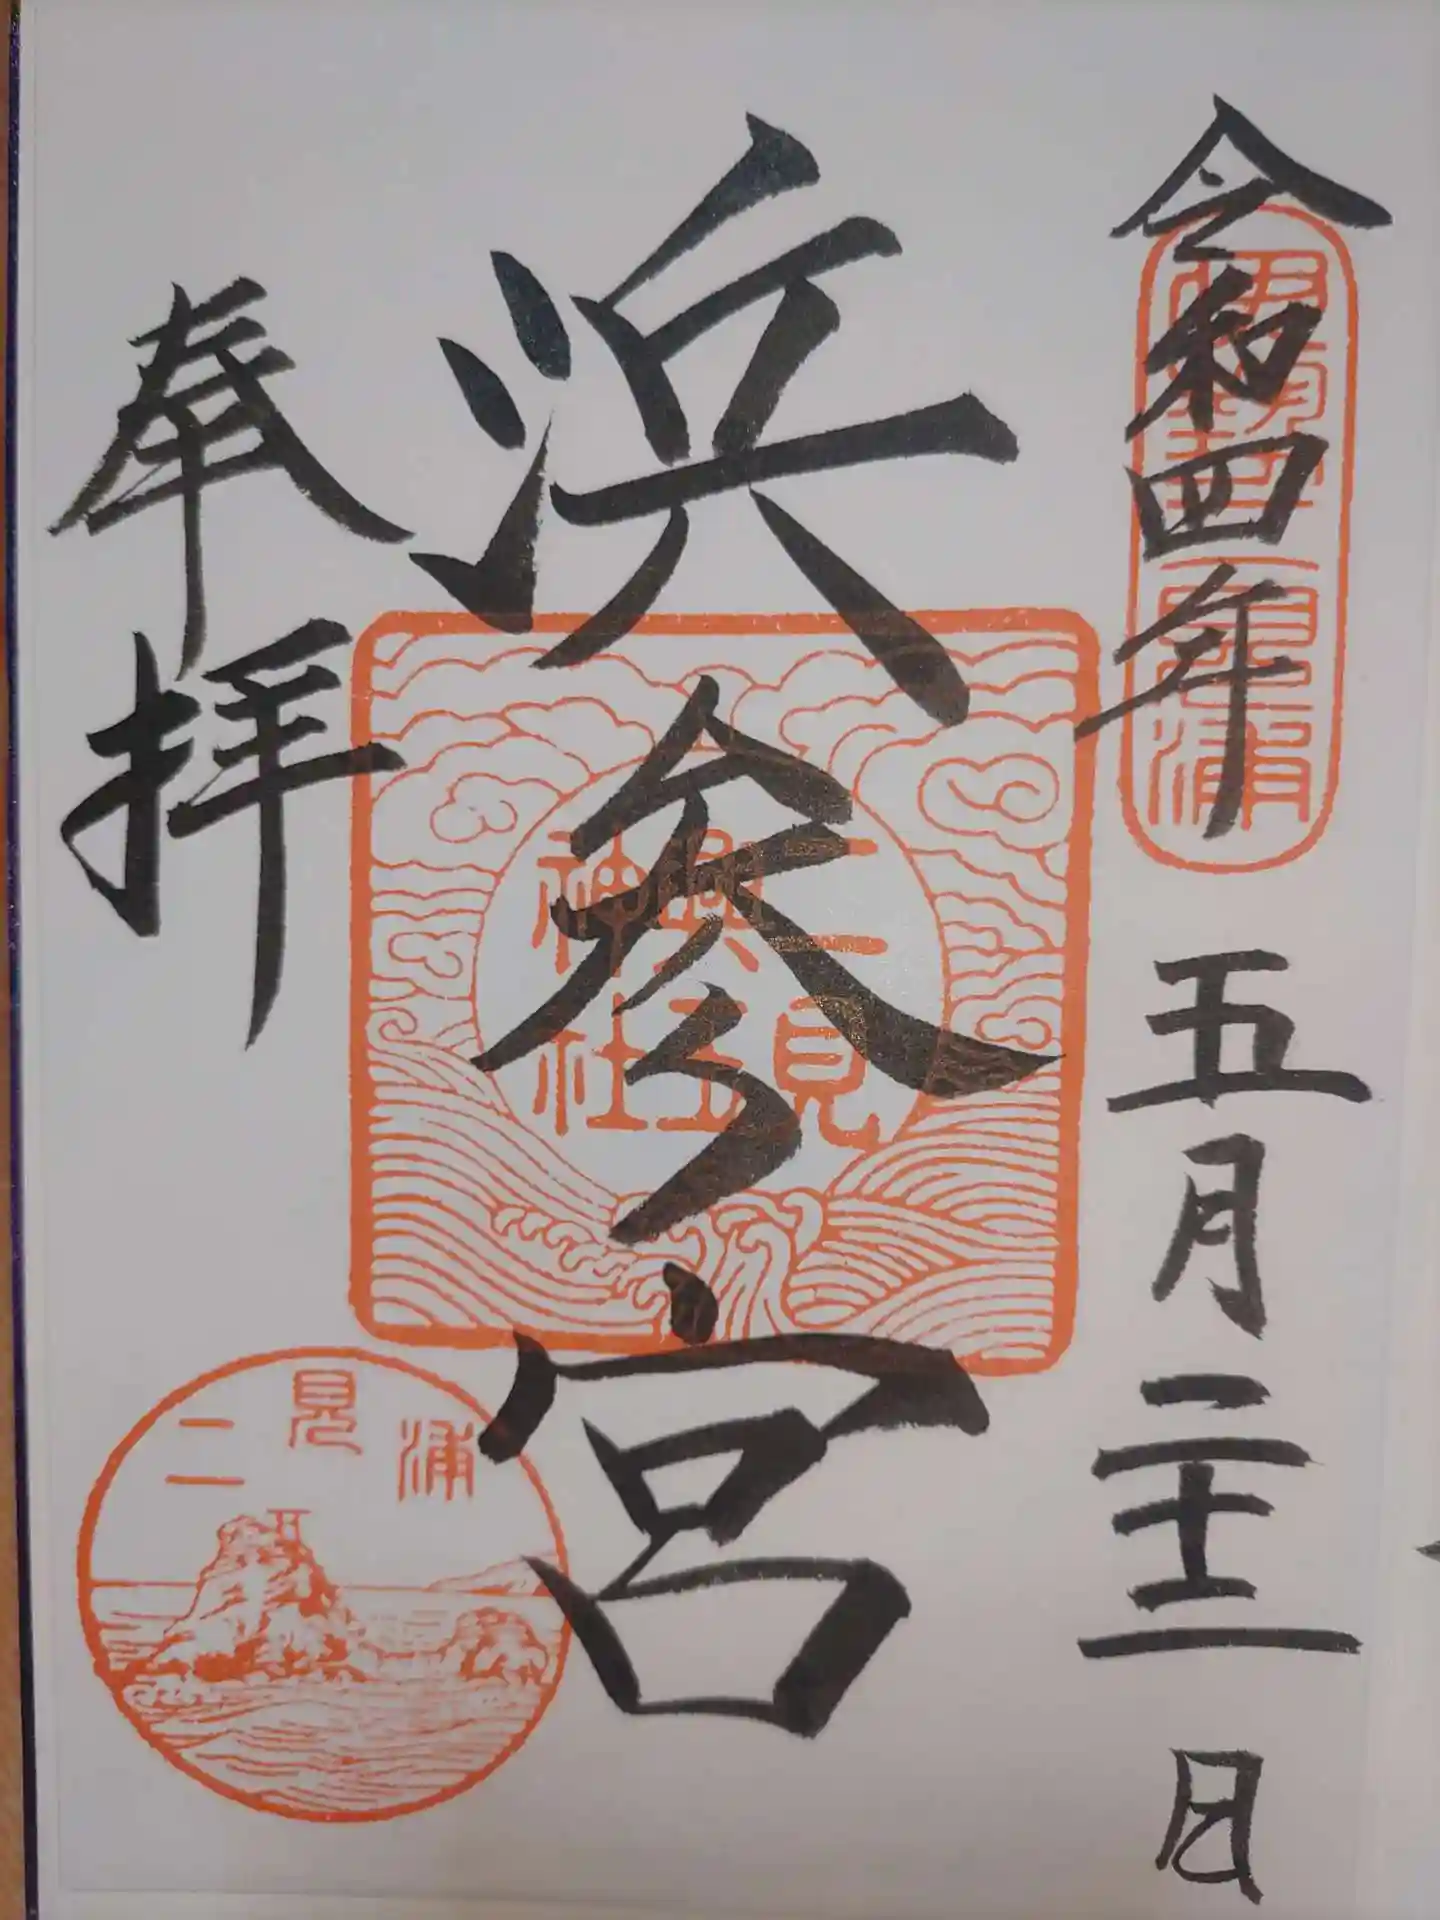 令和四年 五月二十二日
伊勢二見浦
浜参宮
二見興玉神社
奉拝
二見浦